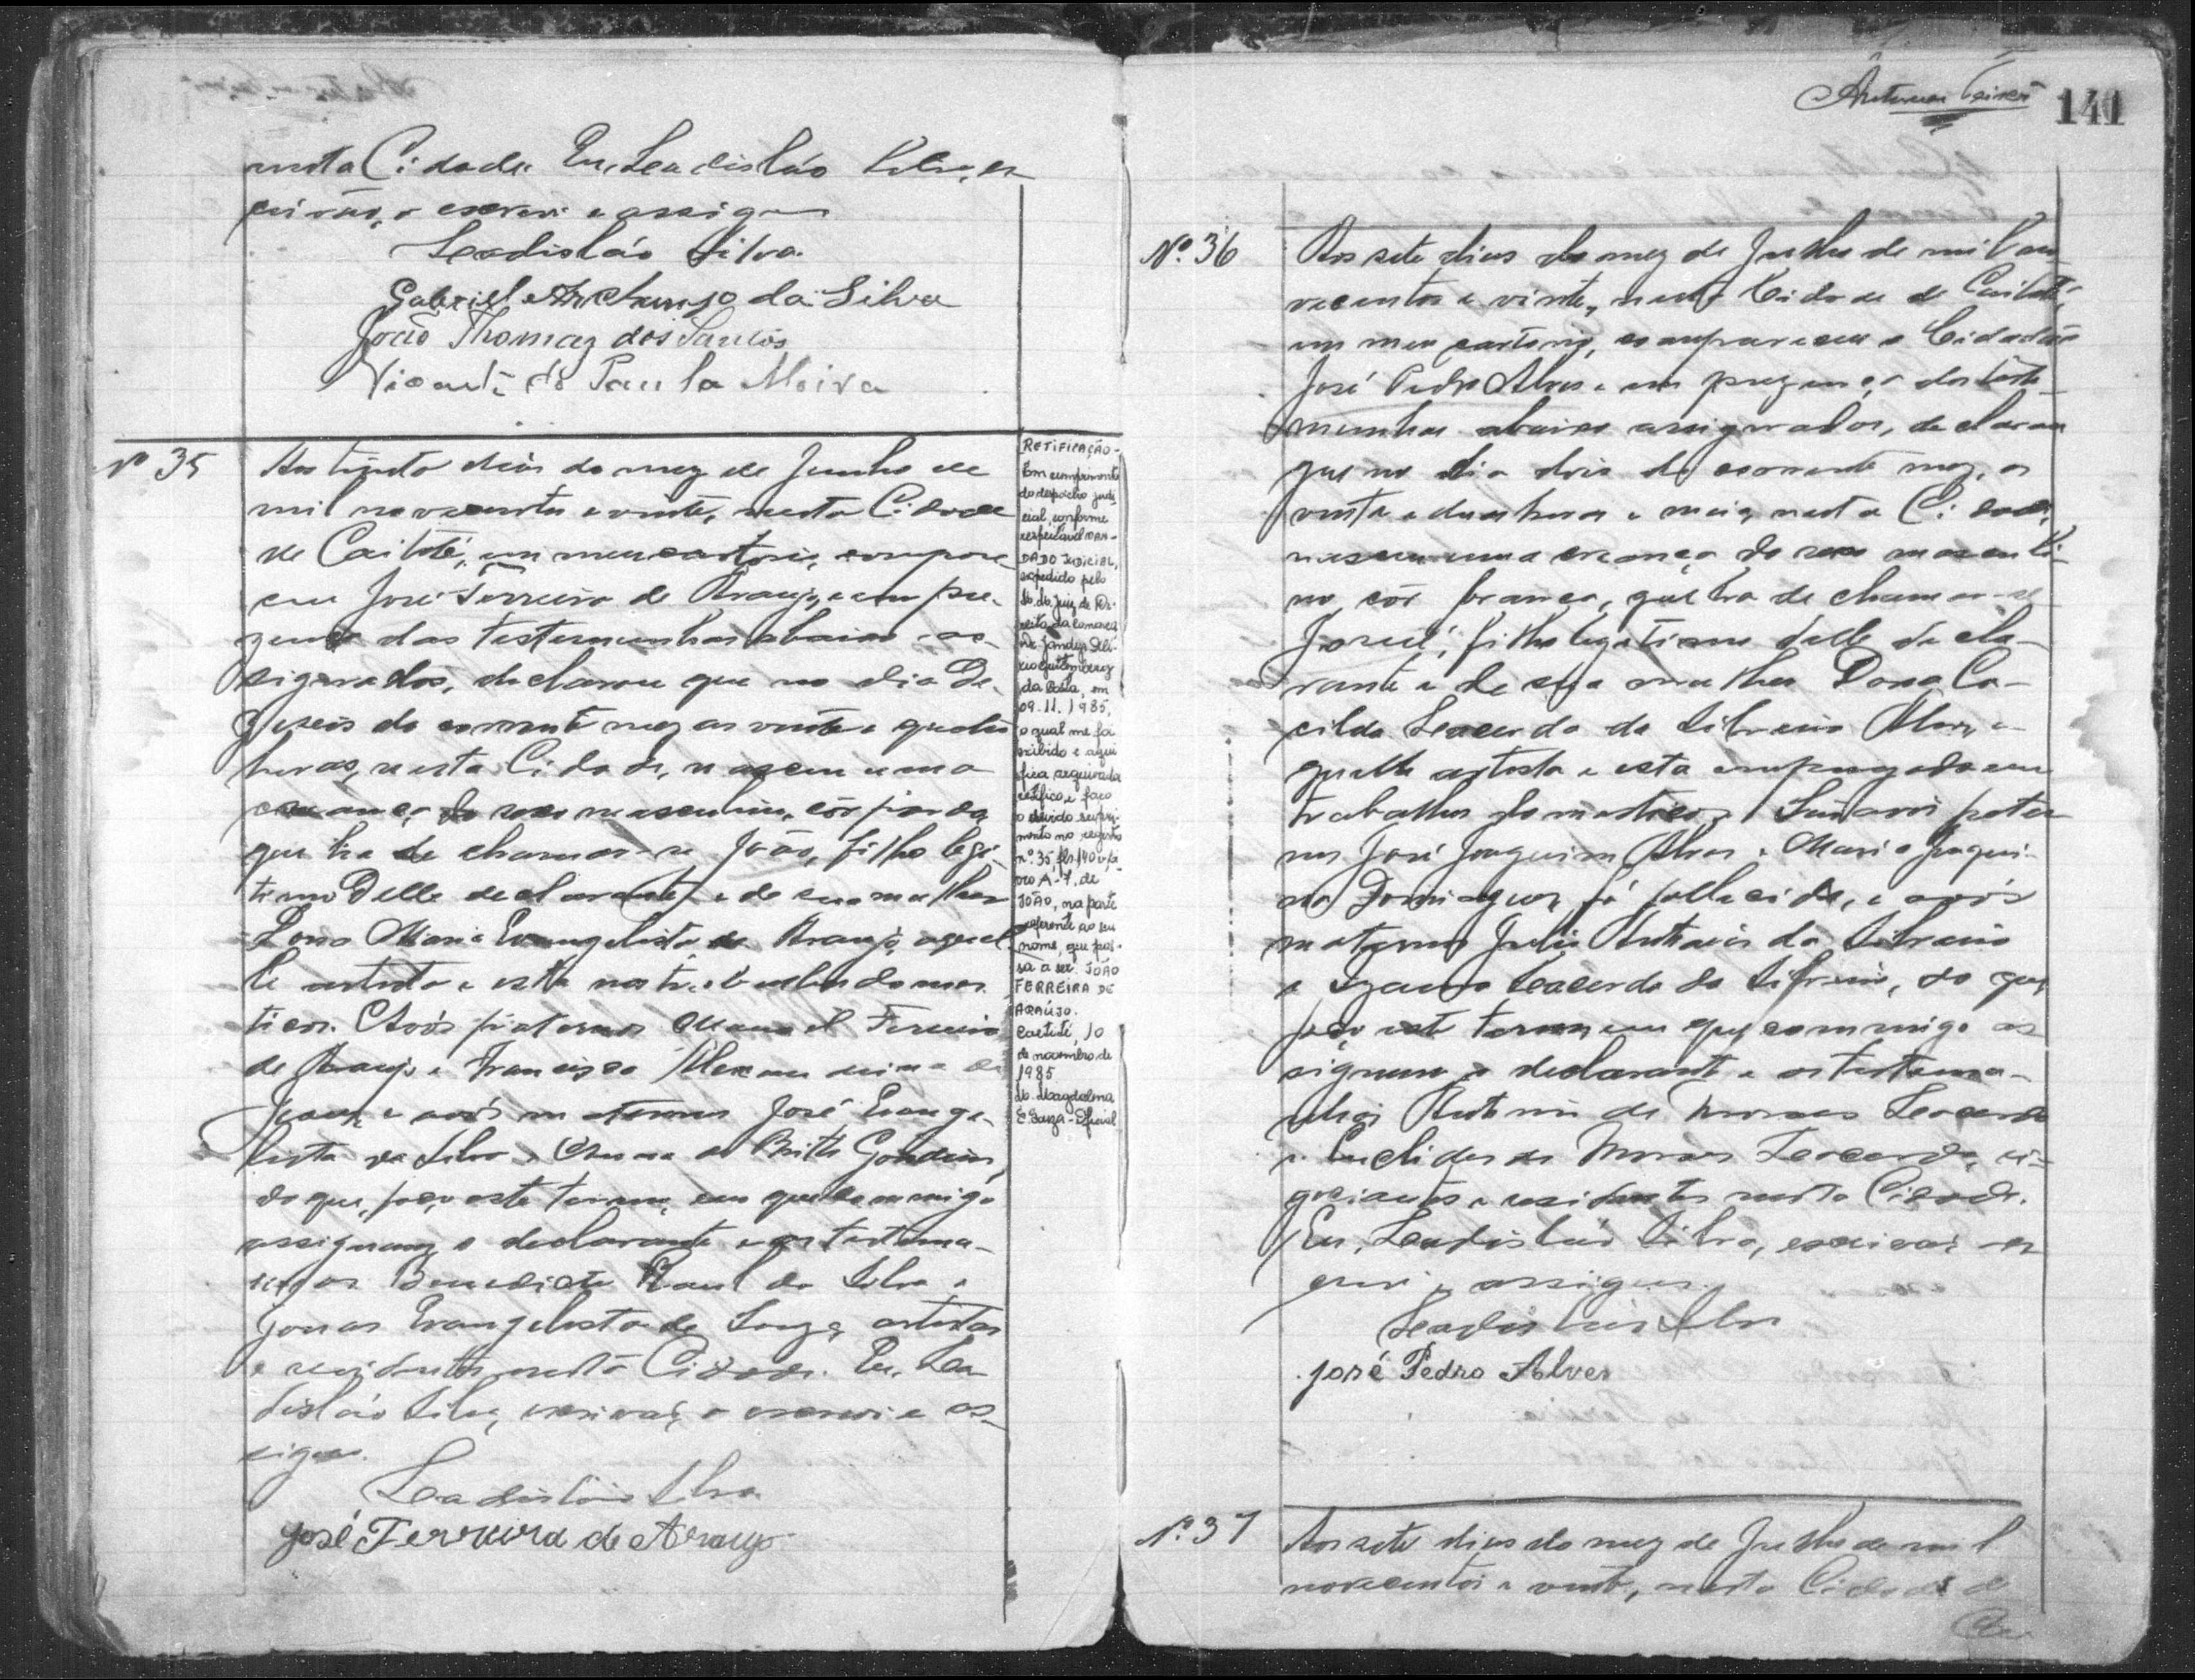 nesta Cidade. Eu, Leadisláo Silva, es
crivão, o escrevi e assigno
Leadisláo Silva.
Gabriel Archanjo da Silva
João Thomaz dos Santos
Vicente de Paula Meira
Nº 35
Aos trinta dias do mez de Junho de
mil novecentos e vinte, nesta Cidade
de Caiteté, em meu cartorio, compare
ceu José Ferreira de Araujo, e em pre-
zença das testemunhas abaixo as-
signados, declarou que no dia de-
zeseis do corrente mez as vinte e quatro
horas, nesta Cidade, nasceu uma
creança do sexo masculino, côr parda
que ha de chamar-se João, filho legi-
timo delle declarante e de sua mulher
Dona Maria Evangelista de Araujo, aquel
le artista e esta nos trabalhos domes
ticos. Avós paternos Manoel Ferreira
de Araujo e Francisca
e avós maternos José Evange-
lista da Silva e Anna de Britto Gondim,
do que, faço este termo, em que commigo
assignam o declarante e as testemu-
nhas Benedicto Raul da Silva e
Jonas Evangelista de Souza, artistas
e residentes nesta Cidade. Eu, Lea
disláo Silva, escrivão, o escrevi e as-
signo.
Leadisláo Silva
José Ferreira de Araujo
RETIFICAÇÃO-
Em cumprimento
do despacho judi
cial, conforme
respeitável MAN-
DADO JUDICIAL,
expedido pelo
M. do Juiz de Di-
reito da Comarca
Dr. Jandyr
da Costa, em
09.11.1985,
o qual me foi
exibido e aqui
fica arquivado
retifico e faço
o devido supri-
mento no registro
nº 35, fls. 140 v, li-
vro A-7, de
JOÃO, na parte
referente ao seu
nome, que pas-
sa a ser: JOÃO
FERREIRA DE
ARAÚJO.
Caetité, 10
de novembro de
1985
M. Magdalena
E. Souza - Oficial
141
Nº. 36
Aos sete dias do mez de Julho de mil no
vecentos e vinte, nesta Cidade de Caiteté,
em meu cartorio, compareceu o Cidadão
José Pedro Alves e em prezença das teste
munhas abaixo assignados, declarou
que no dia dois do corrente mez, as
vinte e duas horas e meia, nesta Cidade,
nasceu uma creança do sexo masculi-
no, côr branca, que ha de chamar-se
Josué, filho legitimo delle decla-
rante e de sua mulher Dona Ca-
cilda Lacerda da Silveira Alves, a-
quelle artista e esta empregada em
trabalhos domesticos. Seus avós pater
nos José Joaquim Alves e Maria Joaqui-
na Domingues, já fallecida, e avós
maternos Julio Antonio da Silveira
e Lacerda da Silveira, do que,
faço este termo, em que commigo as
signam o declarante e as testemu-
nhas Antonio de Moraes Lacerda
e Euclides de Moraes Lacerda, ne-
gociantes e residentes nesta Cidade.
Eu, Leadisláo Silva, escrivão es
crevi e assigno.
Leadisláo Silva
José Pedro Alves
Nº. 37
Aos sete dias do mez de Julho de mil
novecentos e vinte, nesta Cidade de